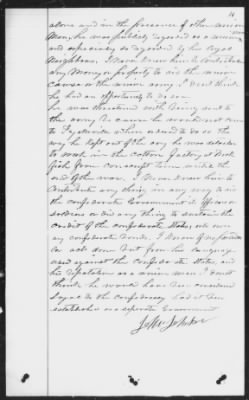 alone and in the presence of other union
Men, he was publicly regarded as a union man
and especially so regarded by his loyal
Neighbors. I never knew him to contribute
any Money or property to aid the union
cause or the union army. I don't think
he had an opportunity to do so.
he was threatened with being sent to
the army because he would not come
to when ordered to do so the
way he kept out of the army he was detailed
to work in the cotton factory at
from conscript until the
end of the war. I never knew him to
contribute any thing in any way to aid
the confederate Government it officers or
soldiers or did any thing to sustain the
credit of the confederate States, nor own
any confederate bonds. I know of no
or acts done but from his language
used against the confederate States, and
his reputation as a union man I don't
think he would have been considered
loyal to the confederacy had it been
established as a separate Government
John Johnson